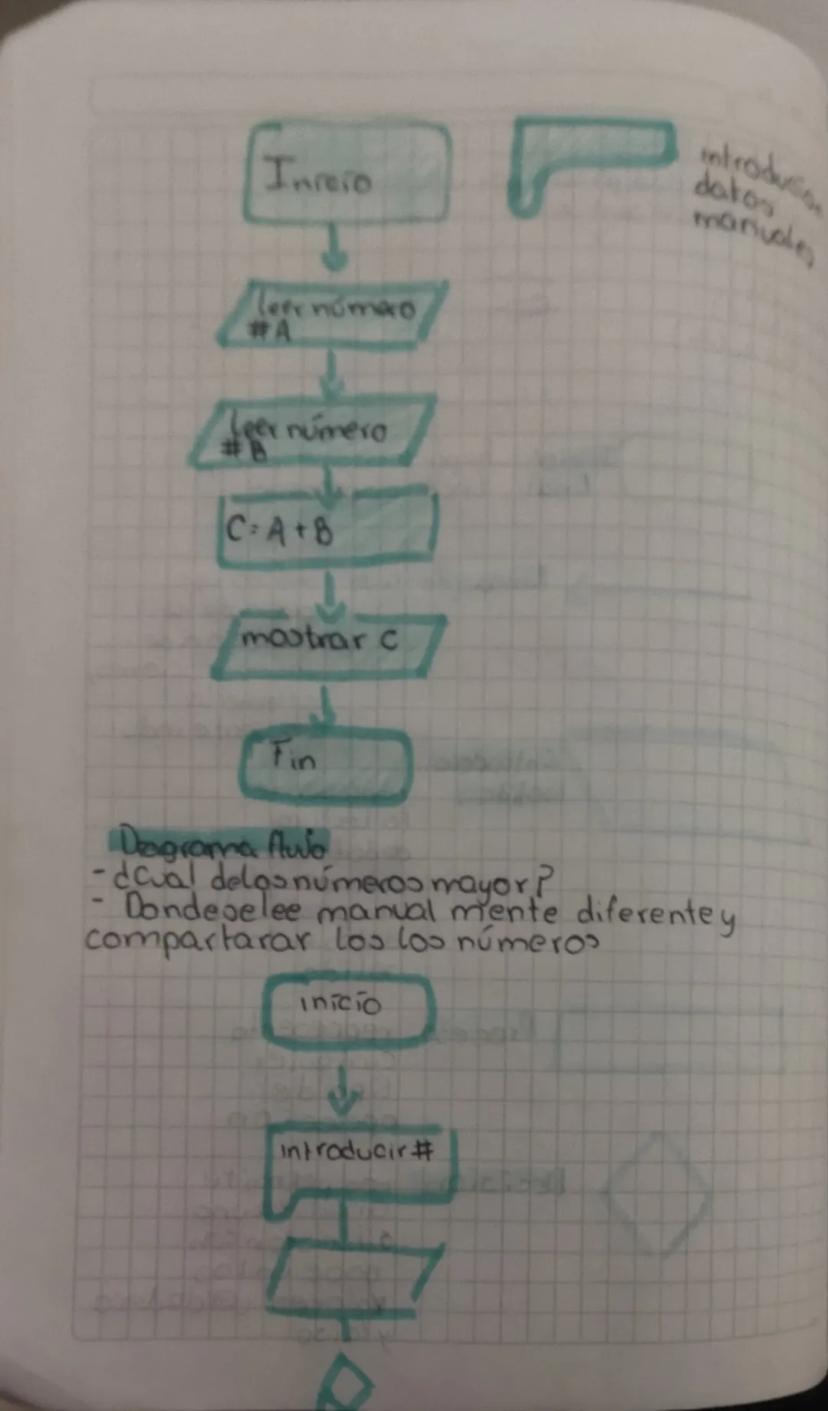 Inicio
introducir
datos
manuales
leer número
#A
leer número
#B
C = A + B
mostrar C
Fin
Diagrama flujo
- ¿Cual delosnúmeros mayor?
- Dondeselee manual mente diferente y
compartarar los los números
inicio
introducir #